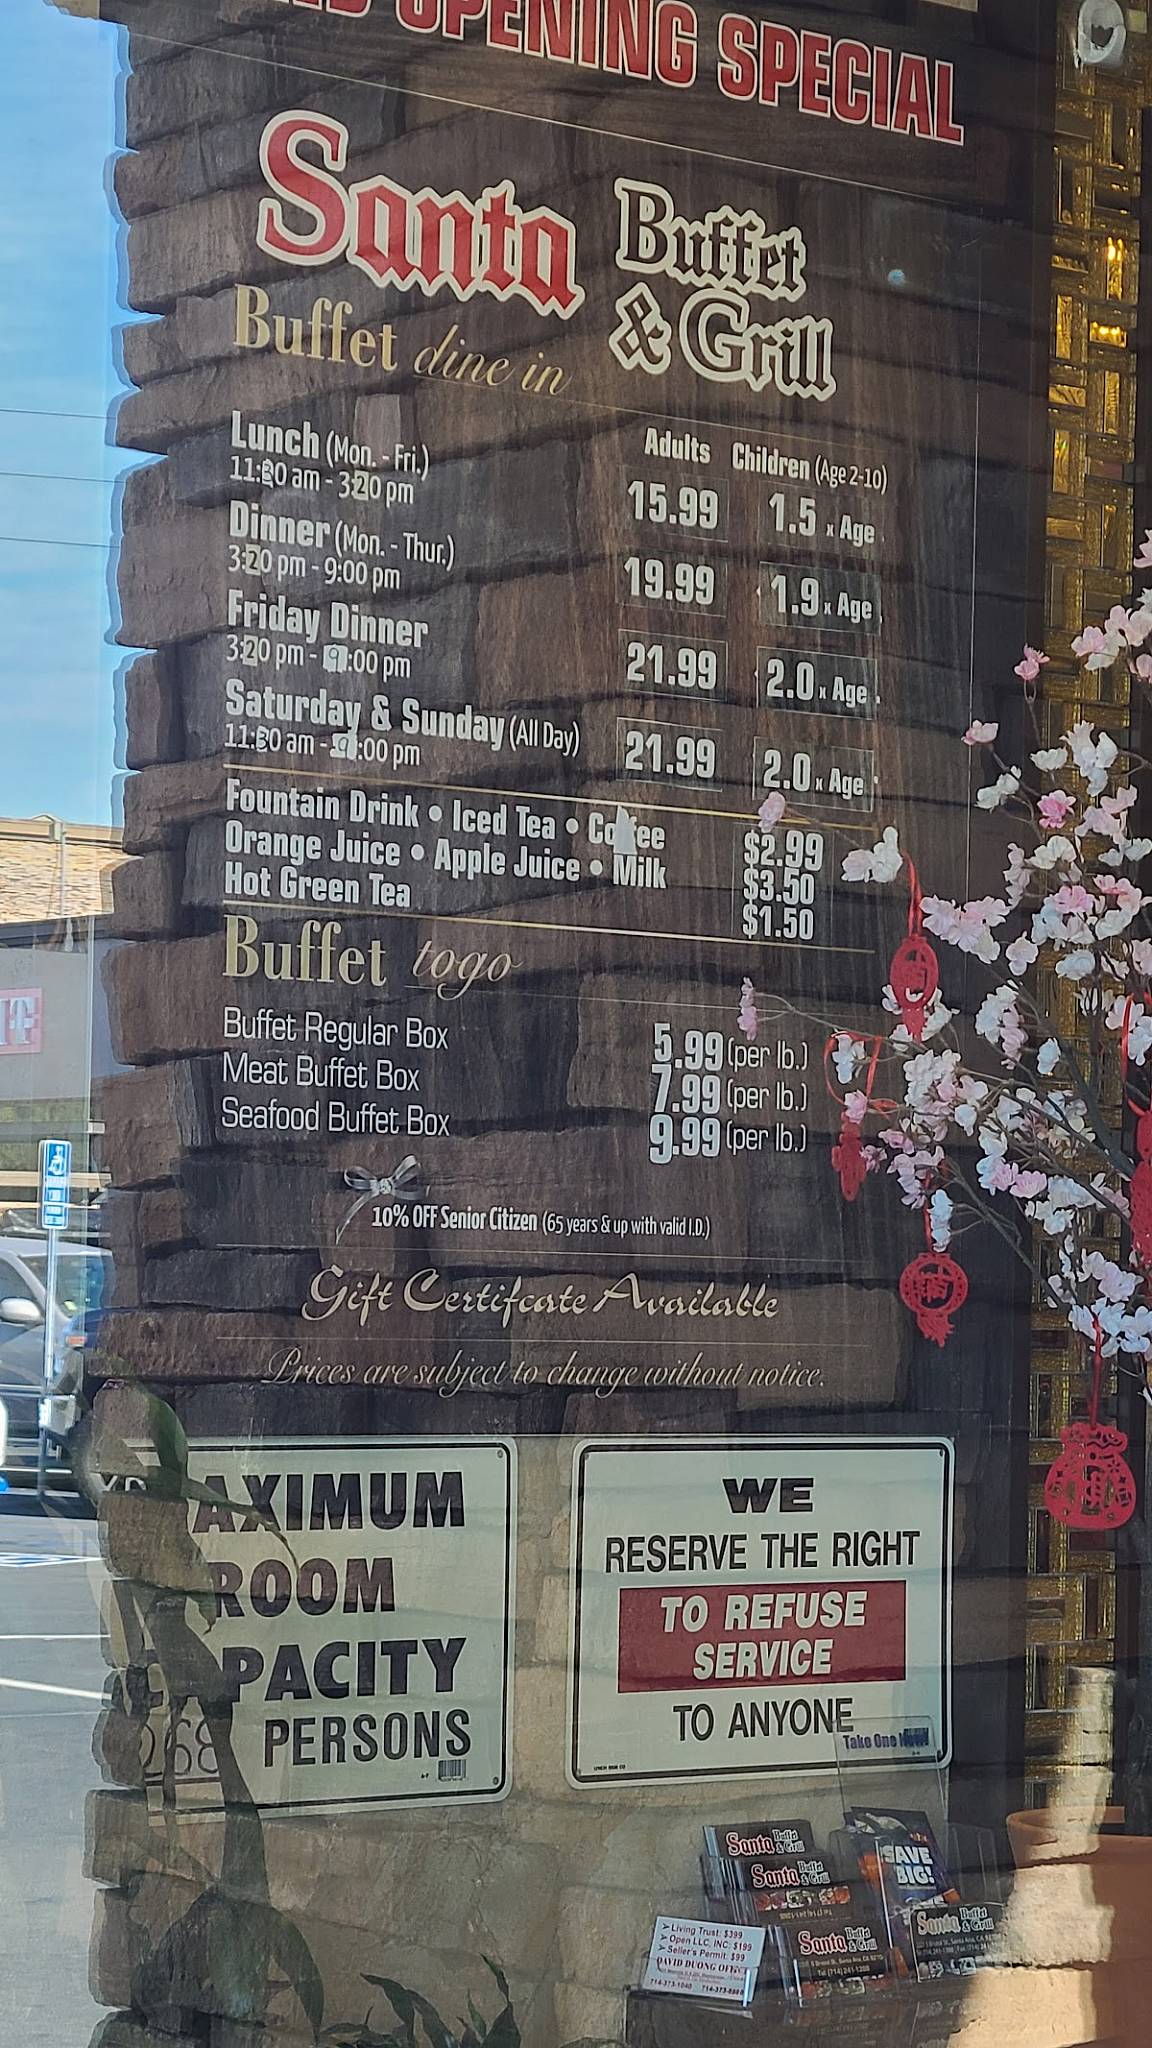 OPENING SPECIAL
Santa Buffet & Grill
Buffet dine in
Adults Children (Age 2-10)
Lunch (Mon. - Fri.)
11:30 am - 3:20 pm 15.99 1.5 x Age
Dinner (Mon. - Thur.)
3:20 pm - 9:00 pm 19.99 1.9 x Age
Friday Dinner
3:20 pm - 9:00 pm 21.99 2.0 x Age
Saturday & Sunday (All Day)
11:30 am - 9:00 pm 21.99 2.0 x Age
Fountain Drink • Iced Tea • Coffee $2.99
Orange Juice • Apple Juice • Milk $3.50
Hot Green Tea $1.50
Buffet togo
Buffet Regular Box 5.99 (per lb.)
Meat Buffet Box 7.99 (per lb.)
Seafood Buffet Box 9.99 (per lb.)
10% OFF Senior Citizen (65 years & up with valid I.D.)
Gift Certifcate Available
Prices are subject to change without notice.
AXIMUM
ROOM
PACITY
268 PERSONS
WE
RESERVE THE RIGHT
TO REFUSE
SERVICE
TO ANYONE
Take One
Santa Buffet & Grill
Santa Buffet & Grill
SAVE
BIG!
Santa Buffet & Grill
Santa Buffet & Grill
Living Trust: $399
Open LLC, INC: $199
Seller's Permit: $99
DAVID DUONG
714-373-1040